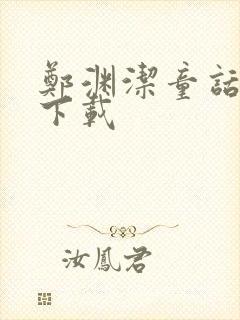 鄭渊潔童話
下載
汝鳳君